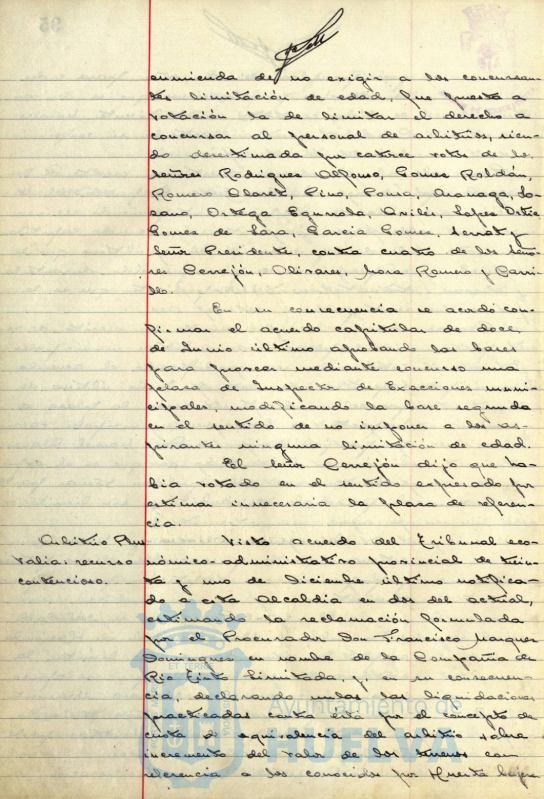 enmienda de no exigir a los concursan-
tes limitación de edad, fue puesta a
votación la de limitar el derecho a
concursar al personal de arbitrios, sien-
do desestimada por catorce votos de los
señores Rodriguez Alfonso, Gomez Roldán,
Romero Claret, Pino, Ponsa, Aranaga, Lo-
zano, Ortega Egurrola, Avilés, Lopez Ortiz
Gomez de Lara, Garcia Gomez, Serrat y
Señor Presidente, contra cuatro de los seño-
res Cerrejón, Olivares, Mora Romero y Carri-
llo.
En su consecuencia se acordó con-
firmar el acuerdo capitular de doce
de Junio último aprobando las bases
para proveer mediante concurso una
plaza de Inspector de Exacciones muni-
cipales, modificando la base segunda
en el sentido de no imponer a los as-
pirantes ninguna limitación de edad.
El señor Cerrejón dijo que ha-
bia votado en el sentido expresado por
estimar innecesaria la plaza de referen-
cia.
Arbitrio Plus
Valia: recurso
contencioso.
Visto acuerdo del Tribunal eco-
nómico-administrativo provincial de trein-
ta y uno de Diciembre último notifica-
do a esta Alcaldia en dos del actual,
estimando la reclamación formulada
por el Procurador Don Francisco Marquez
Dominguez en nombre de la Compañia de
Rio Tinto Limitada, y, en su consecuen-
cia, declarando nulas las liquidaciones
practicadas contra ésta por el concepto de
cuota de equivalencia del arbitrio sobre
incremento del valor de los terrenos con
referencia a los conocidos por Huerta
Ayuntamiento de
HUELVA